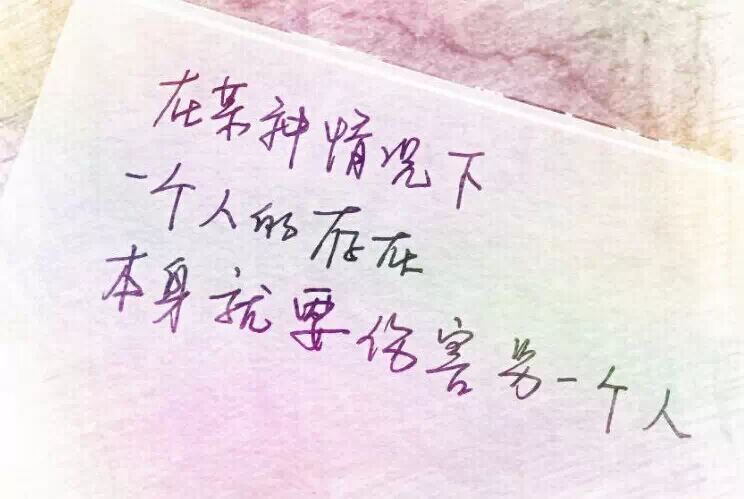 在某种情况下
一个人的存在
本身就要伤害另一个人